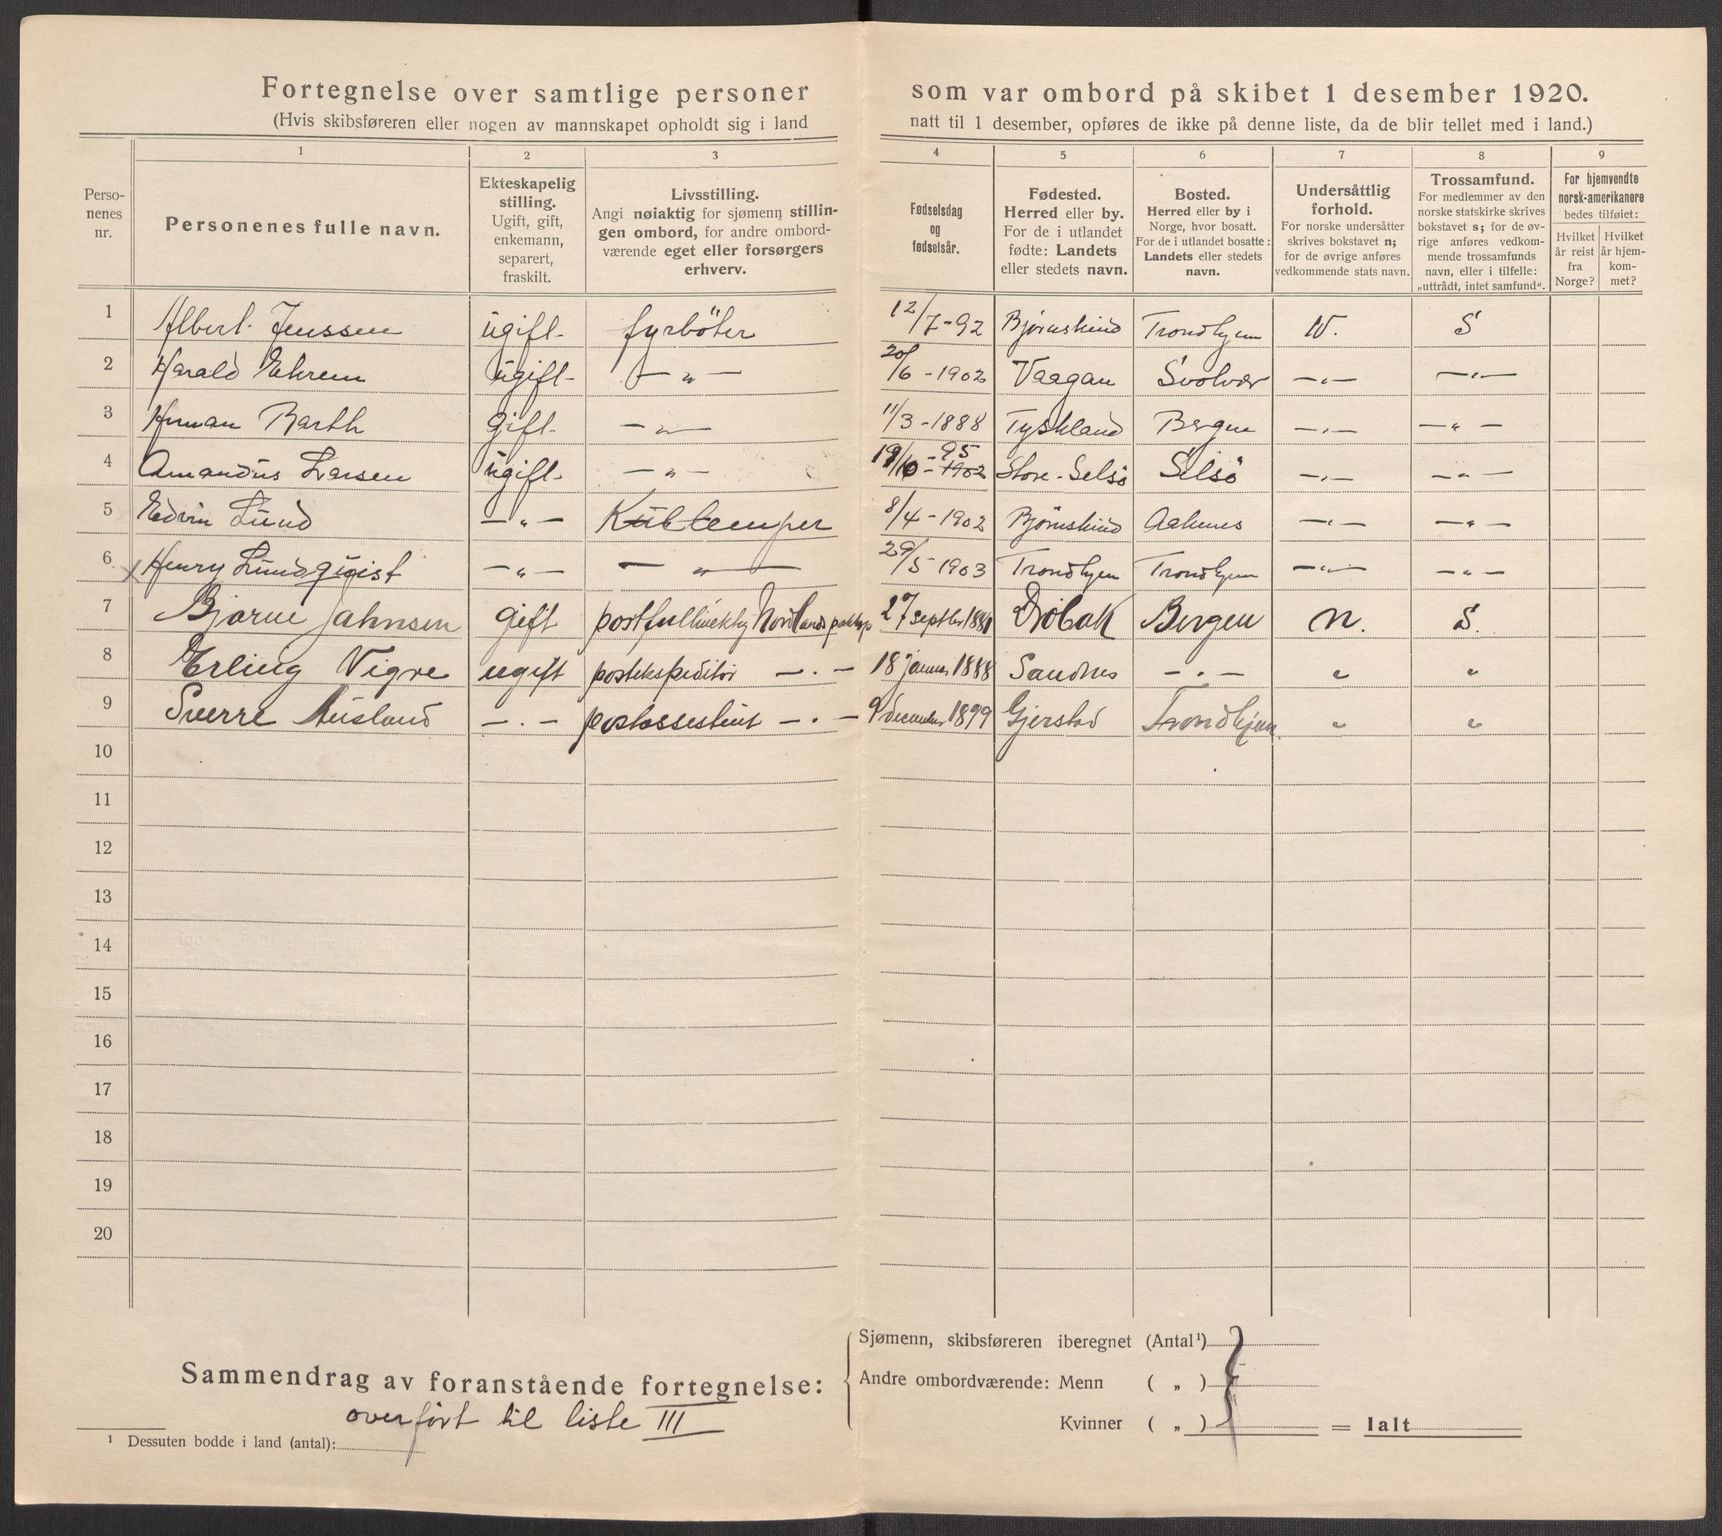 Fortegnelse over samtlige personer som var ombord på skibet 1 desember 1920.
(Hvis skibsføreren eller nogen av mannskapet opholdt sig i land natt til 1 desember, opføres de ikke på denne liste, da de blir tellet med i land.)
Personenes nr.
1 Personenes fulle navn.
2 Ekteskapelig stilling. Ugift, gift, enkemann, separert, fraskilt.
3 Livsstilling. Angi nøiaktig for sjømenn stillingen ombord, for andre ombordværende eget eller forsørgers erhverv.
4 Fødselsdag og fødselsår.
5 Fødested. Herred eller by. For de i utlandet fødte: Landets eller stedets navn.
6 Bosted. Herred eller by i Norge, hvor bosatt. For de i utlandet bosatte: Landets eller stedets navn.
7 Undersåttlig forhold. For norske undersåtter skrives bokstavet n; for de øvrige anføres vedkommende stats navn.
8 Trossamfund. For medlemmer av den norske statskirke skrives bokstavet s; for de øvrige anføres vedkommende trossamfunds navn, eller i tilfelle: „uttrådt, intet samfund“.
9 For hjemvendte norsk-amerikanere bedes tilføiet: Hvilket år reist fra Norge? Hvilket år hjemkommet?
1 Albert Jenssen ugift fyrböter 12/7-92 Bjørnskind Trondhjem N. S
2 Harald Ehrem ugift — „ — 20/6-1902 Vaagan Svolvær — „ — — „ —
3 Herman Barth gift — „ — 11/3-1888 Tyskland Bergen — „ — — „ —
4 Amandus Larsen ugift — „ — 19/10-95 1902 Store-Selsö Selsö — „ — — „ —
5 Edvin Lund — „ — Kullemper 8/4-1902 Bjørnskind — „ — — „ —
6 x Henry Lundqvist — „ — — „ — 29/5-1903 Trondhjem Trondhjem — „ — — „ —
7 Bjarne Jahnsen gift 27 septbr 1881 Dröbak Bergen n. S.
8 Erling Vigre ugift postekspeditör — „ — 18 januar 1888 Sandnes — „ — „ „
9 Sverre Ausland — „ — postassestent — „ — 9 december 1899 Gjerstad Trondhjem „ „
10
11
12
13
14
15
16
17
18
19
20
Sammendrag av foranstående fortegnelse:
overfört til liste III
Sjømenn, skibsføreren iberegnet (Antal¹)
Andre ombordværende: Menn ( „ )
Kvinner ( „ ) = Ialt
¹ Dessuten bodde i land (antal):